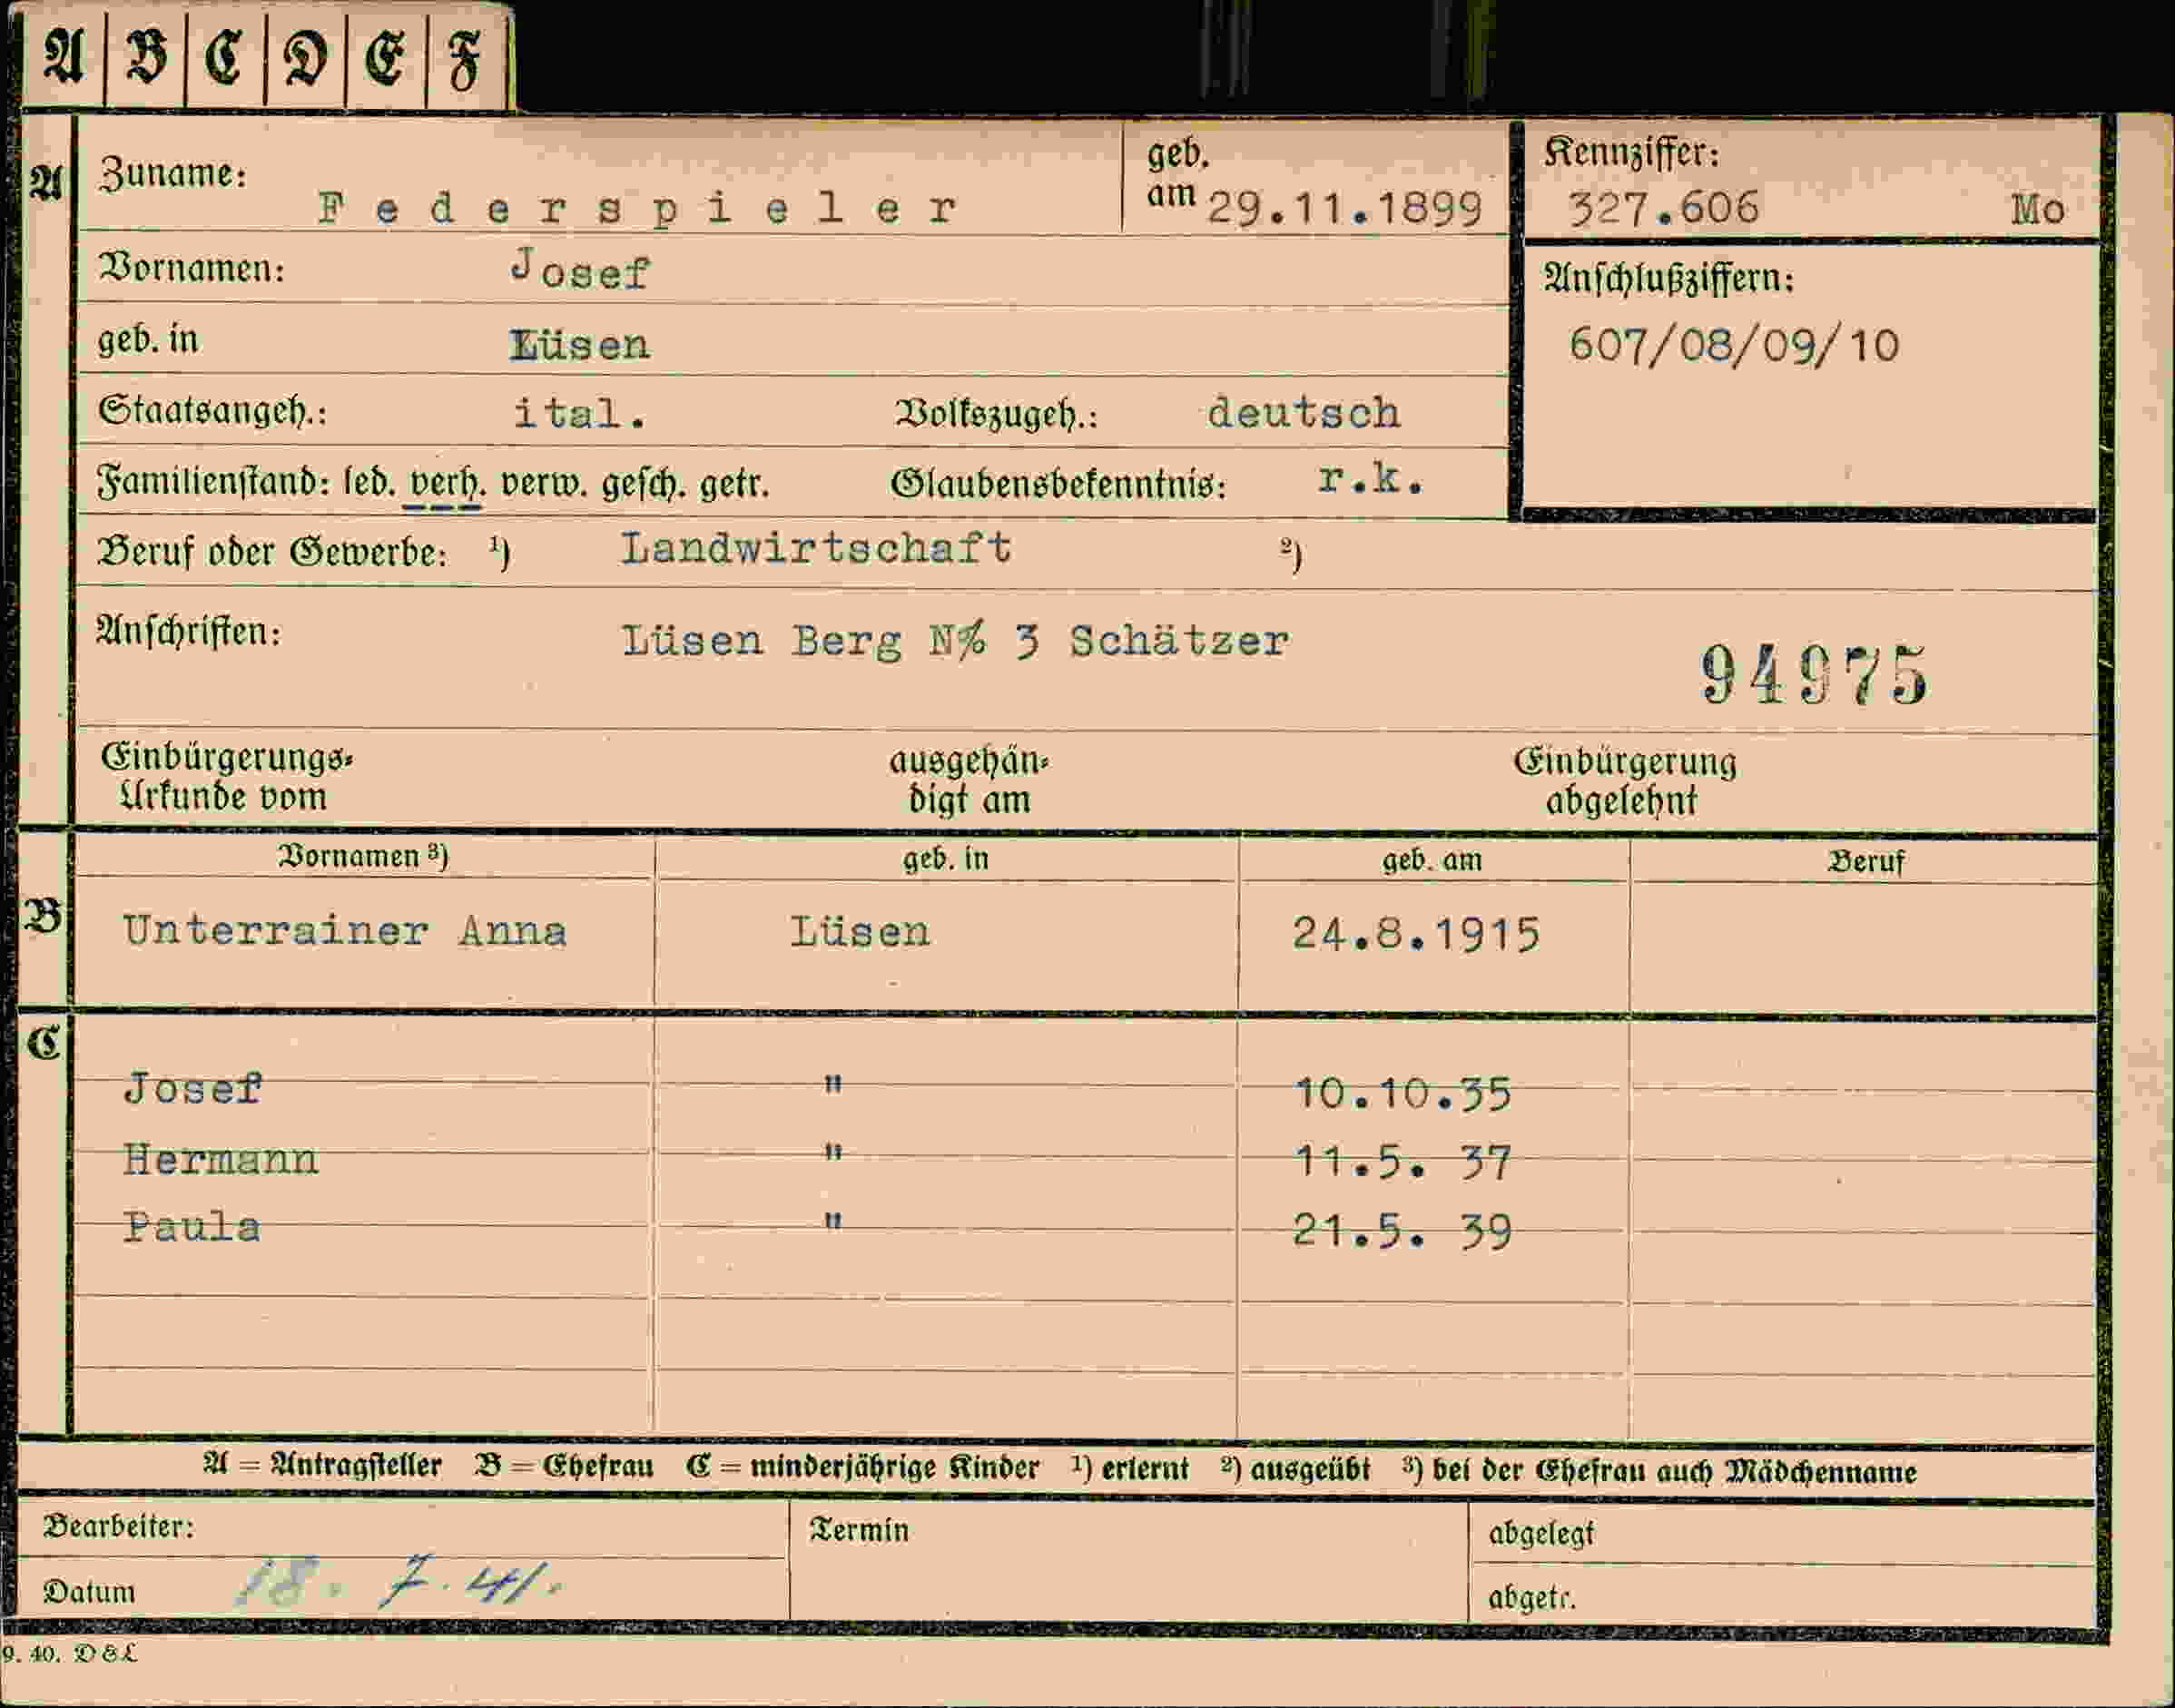 A B C D E F
A Zuname: Federspieler geb. am 29.11.1899 Kennziffer: 327.606 Mo
Vornamen: Josef Anschlußziffern:
geb. in Lüsen 607/08/09/10
Staatsangeh.: ital. Volkszugeh.: deutsch
Familienstand: led. verh. verw. gesch. getr. Glaubensbekenntnis: r.k.
Beruf oder Gewerbe: 1) Landwirtschaft 2)
Anschriften: Lüsen Berg N% 3 Schätzer
94975
Einbürgerungs- ausgehän- Einbürgerung
Urkunde vom digt am abgelehnt
Vornamen 3) geb. in geb. am Beruf
B Unterrainer Anna Lüsen 24.8.1915
C
Josef " 10.10.35
Hermann " 11.5. 37
Paula " 21.5. 39
A = Antragsteller B = Ehefrau C = minderjährige Kinder 1) erlernt 2) ausgeübt 3) bei der Ehefrau auch Mädchenname
Bearbeiter: Termin abgelegt
Datum 18. 7. 41. abgetr.
9. 40. D&L